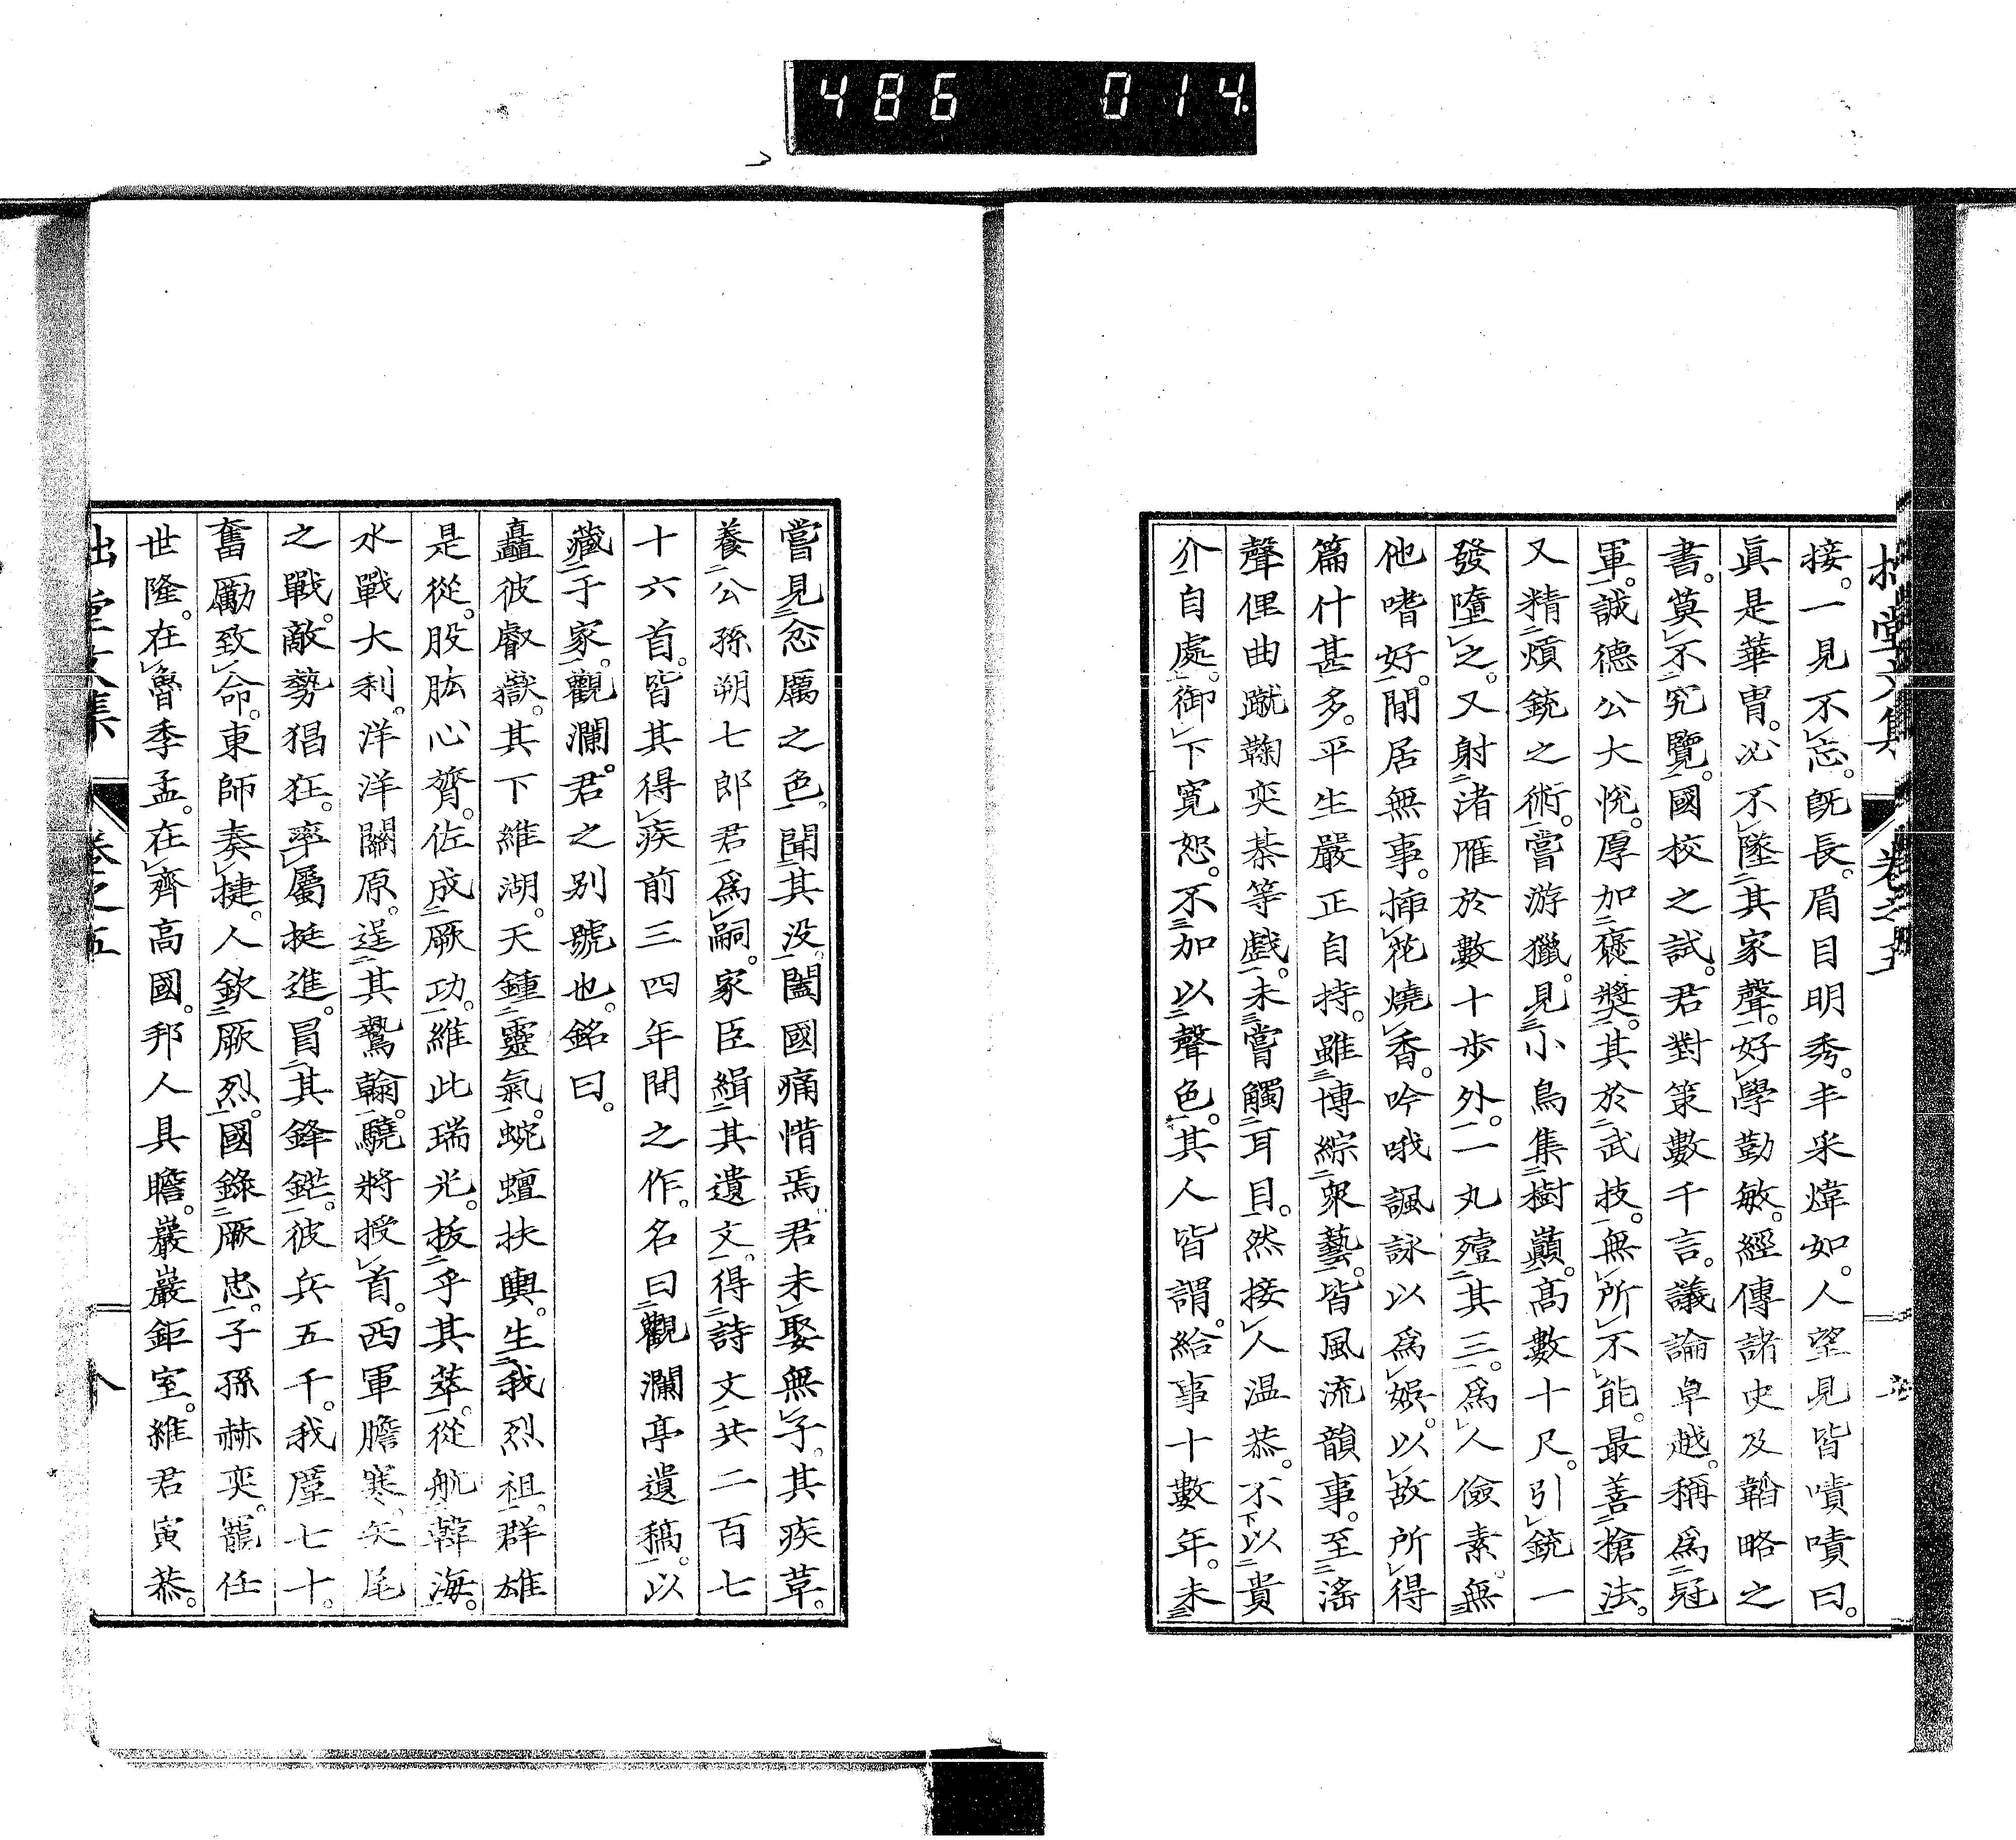 486 014
接。一見不忘。既長。眉目明秀。丰采煒如。人望見皆嘖嘖曰。
眞是華胄。必不墜其家聲。好學勤敏。經傳諸史及韜略之
書。莫不究覽。國校之試。君對策數千言。議論卓越。稱爲冠
軍。誠德公大悅。厚加褒奬。其於武技。無所不能。最善槍法。
又精煩銃之術。嘗游獵。見小鳥集樹巔。高數十尺。引銃一
發墮之。又射渚雁於數十步外。一丸殪其三。爲人儉素。無
他嗜好。間居無事。揷花燒香。吟哦諷詠以爲娛。以故所得
篇什甚多。平生嚴正自持。雖博綜衆藝。皆風流韻事。至滛
聲俚曲蹴鞠奕棊等戲。未嘗觸耳目。然接人温恭。不以貴
介自處。御下寛恕。不加以聲色。其人皆謂。給事十數年。未
嘗見忿厲之色。聞其没。闔國痛惜焉。君未娶無子。其疾革。
養公孫朔七郎君爲嗣。家臣緝其遺文。得詩文共二百七
十六首。皆其得疾前三四年間之作。名曰觀瀾亭遺稿。以
藏于家。觀瀾。君之别號也。銘曰。
矗彼睿嶽。其下維湖。天鍾靈氣。蜿蟺扶輿。生我烈祖。群雄
是從。股肱心膂。佐成厥功。維此瑞光。拔乎其萃。從航韓海。
水戰大利。洋洋關原。逞其鷙翰。驍將授首。西軍膽寒。矢尾
之戰。敵勢猖狂。率屬挺進。冒其鋒鋩。彼兵五千。我廑七十。
奮勵致命。東師奏捷。人欽厥烈。國錄厥忠。子孫赫奕。寵任
世隆。在魯季孟。在齊高國。邦人具瞻。巖巖鉅室。維君寅恭。